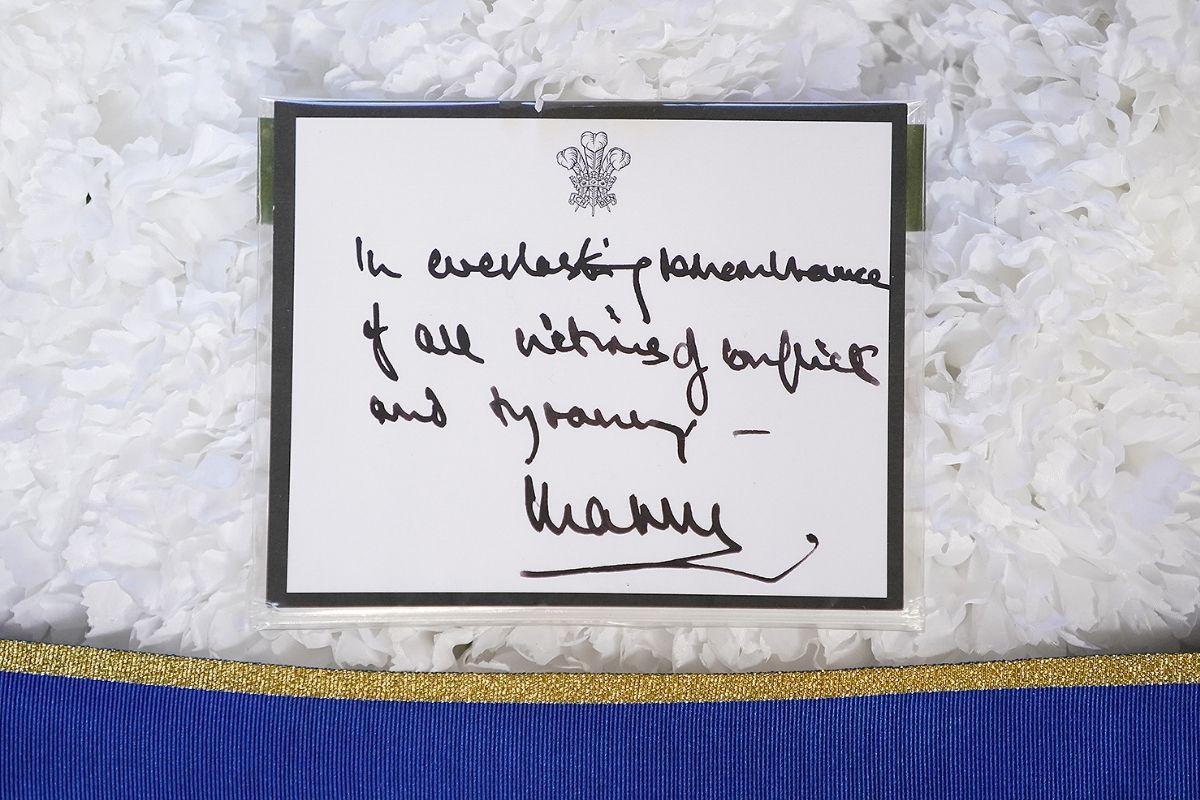 In everlasting remembrance
of all victims of conflict
and tyranny –
Charles